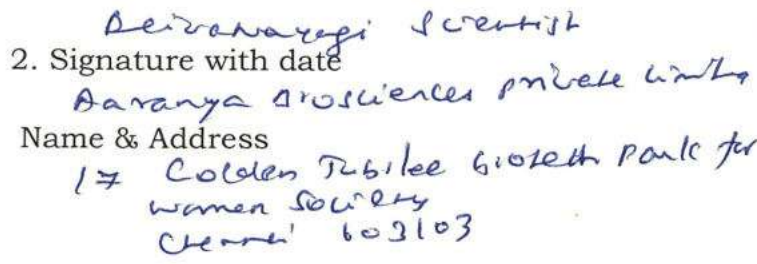 Deivanayagi Scientist
2. Signature with date
Aaranya Biosciences private limited
Name & Address
17 Golden Jubilee Biotech Park for
women Society
Chennai 603103